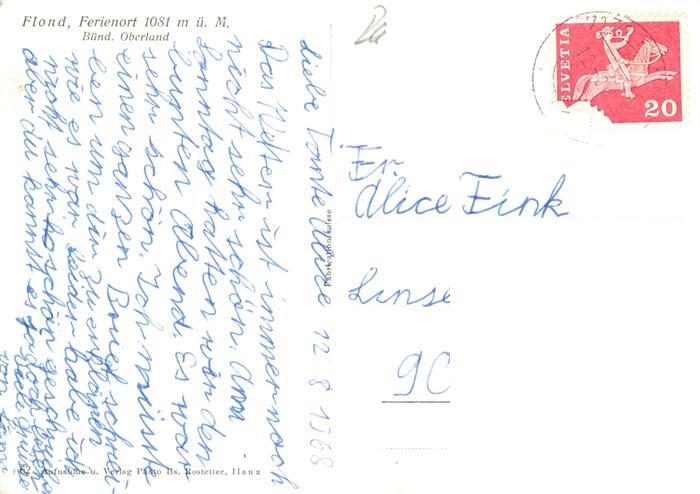 Flond, Ferienort 1081 m ü. M.
Bünd. Oberland
HELVETIA
20
Liebe Tante Alice 12 8 1968
Das Wetter ist immer noch
nicht sehr schön. Am
Sonntag hatten wir den
bunten Abend. Es war
sehr schön. Ich müsste
einen ganzen Brief schrei-
ben um dir zu erzählen
wie es war. Leider habe ich
nicht sehr so schön geschrieben
aber du kannst es ja doch lesen
viele Grüsse
von
Fr.
Alice Fink
Linse
90
Fabrication suisse
62 Aufnahme u. Verlag Photo Hs. Rostetter, Ilanz